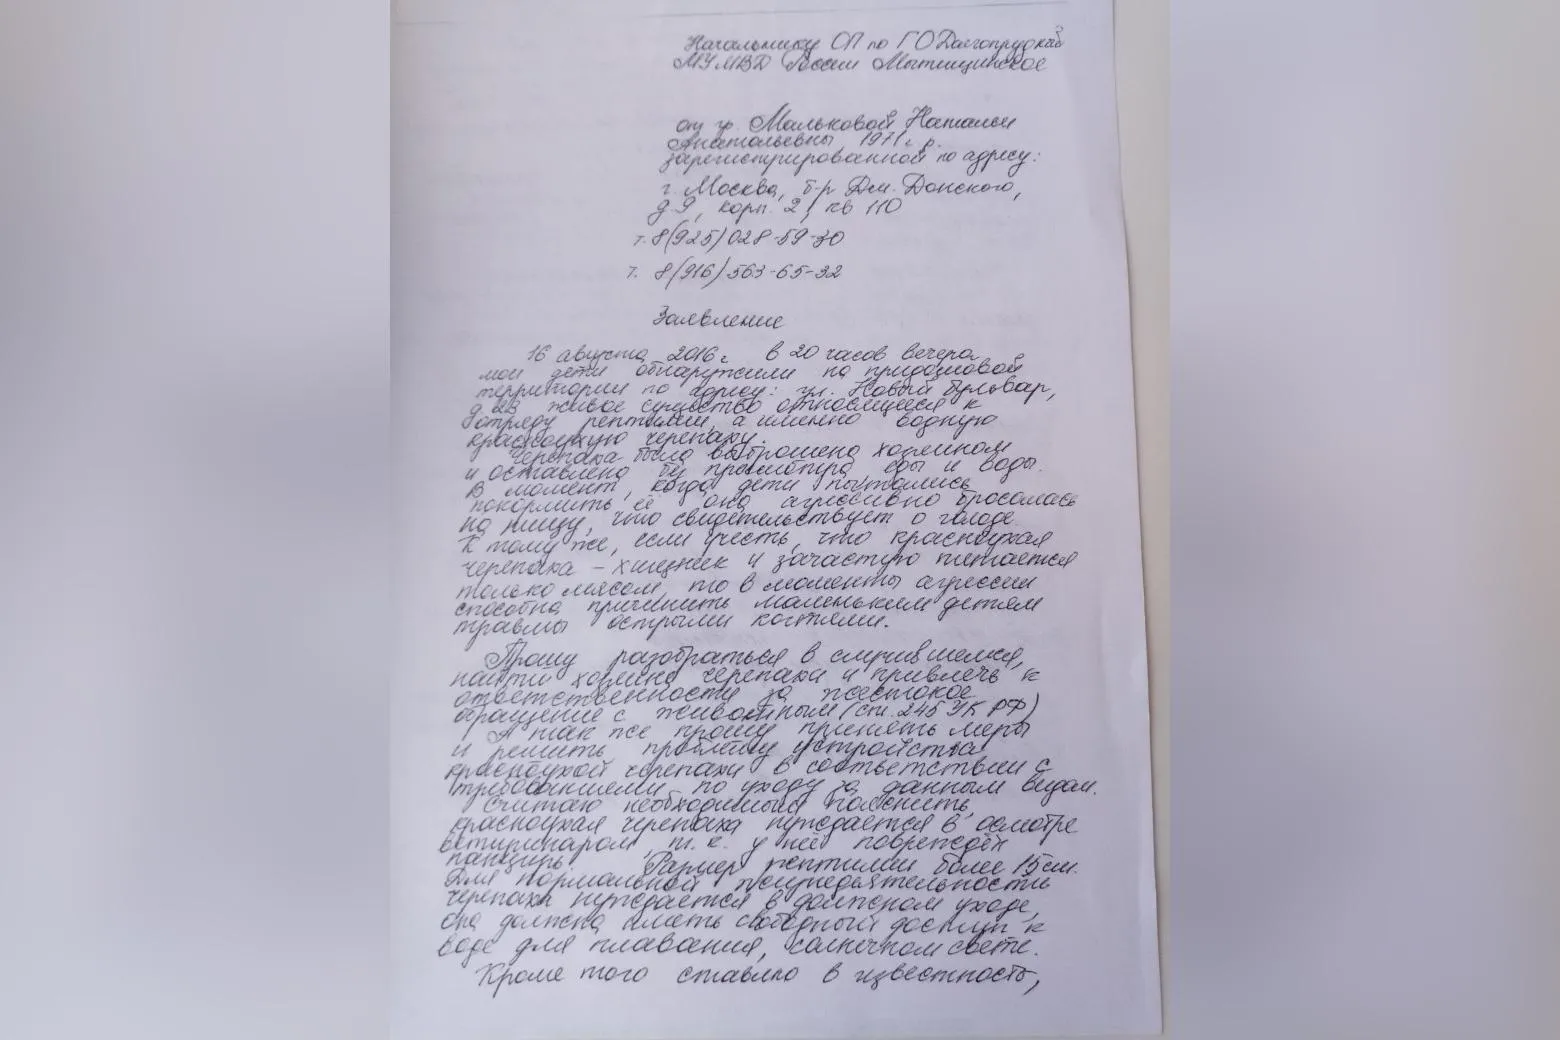 Начальнику ОП по ГО Долгопрудный
МУ МВД России Мытищинское
от гр. Мальковой Натальи
Анатольевны 1971 г.р.
зарегистрированной по адресу:
г. Москва, б-р Дм. Донского,
д 9, корп. 2, кв 110
т. 8(925)028-59-30
т. 8(916)563-65-32
Заявление
16 августа 2016 г. в 20 часов вечера
мои дети обнаружили на придомовой
территории по адресу: ул. Новый бульвар,
д. 23 живое существо относящееся к
отряду рептилии, а именно водную
красноухую черепаху.
Черепаха была выброшена хозяином
и оставлена без присмотра еды и воды.
В момент, когда дети пытались
покормить её она агрессивно бросалась
на пищу, что свидетельствует о голоде.
К тому же, если учесть, что красноухая
черепаха - хищник и зачастую питается
только мясом, то в моменты агрессии
способна причинить маленьким детям
травмы острыми когтями.
Прошу разобраться в случившемся,
найти хозяина черепахи и привлечь к
ответственности за жестокое
обращение с животным (ст. 245 УК РФ)
А так же прошу принять меры
и решить проблему устройства
красноухой черепахи в соответствии с
требованиями по уходу за данным видом.
Считаю необходимым пояснить,
красноухая черепаха нуждается в осмотре
ветеринаром, т.к. у неё повреждён
панцирь. Размер рептилии более 15 см.
Для нормальной жизнедеятельности
черепаха нуждается в должном уходе,
она должна иметь свободный доступ к
воде для плавания, солнечном свете.
Кроме того ставлю в известность,